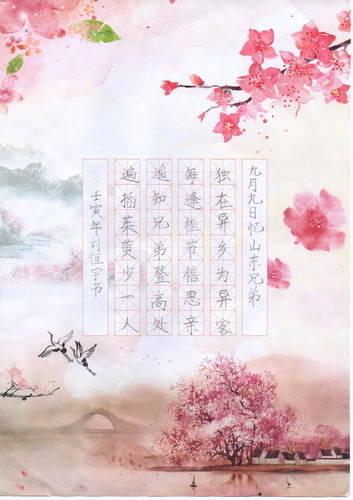 九月九日忆山东兄弟
独在异乡为异客
每逢佳节倍思亲
遥知兄弟登高处
遍插茱萸少一人
壬寅年刘恒宇书